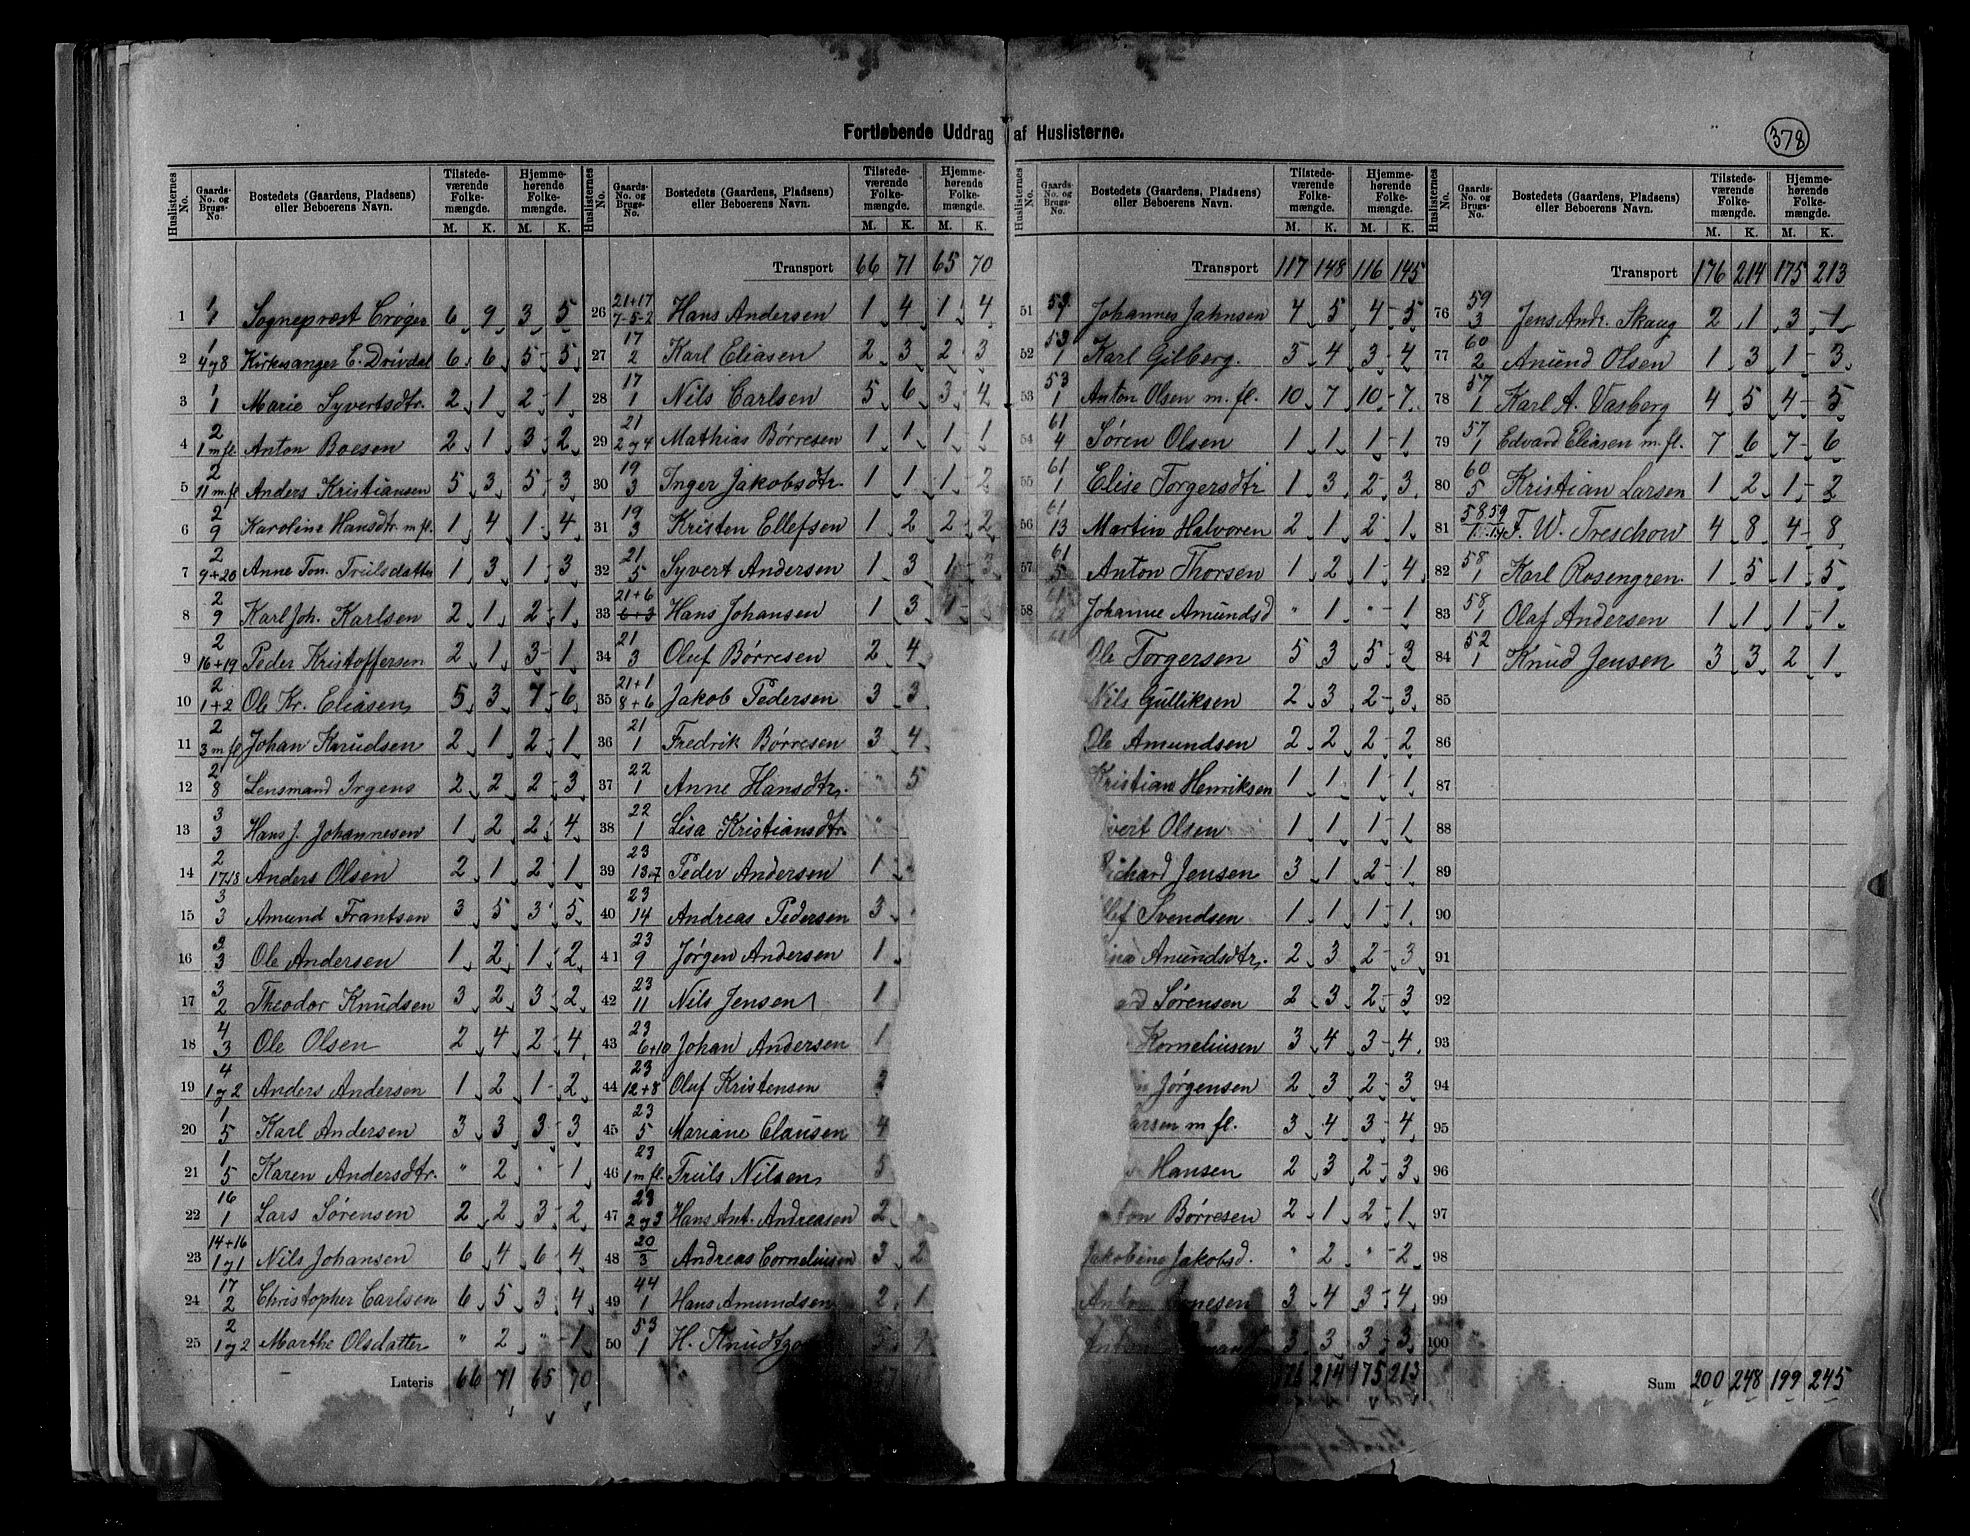 Fortløbende Uddrag af Huslisterne.
378
Huslisternes No. Gaards-No. og Brugs-No. Bostedets (Gaardens, Pladsens) eller Beboerens Navn. Tilstedeværende Folkemængde. Hjemmehørende Folkemængde.
M. K. M. K.
1 1 1 Sognepræst Crøger 6 9 3 5
2 1 4 g 8 Kirkesanger E. Drivdal 6 6 5 5
3 1 1 Marie Syvertsdtr. 2 1 2 1
4 2 1 m fl. Anton Boesen 2 1 3 2
5 2 11 m. fl Anders Kristiansen 5 3 5 3
6 2 9 Karoline Hansdtr m fl. 1 4 1 4
7 2 9+20 Anne Ton. Trulsdatter 1 3 1 3
8 2 9 Karl Joh. Karlsen 2 1 2 1
9 2 16+19 Peder Kristoffersen 2 1 3 1
10 2 1+2 Ole Kr. Eliasen 5 3 7 6
11 2 3 m fl Johan Knudsen 2 1 2 1
12 2 8 Lensmand Irgens 2 2 2 3
13 3 3 Hans J. Johannesen 1 2 2 4
14 2 17+18 Anders Olsen 2 1 2 1
15 3 3 Amund Frantsen 3 5 3 5
16 3 3 Ole Andersen 1 2 1 2
17 3 2 Theodor Knudsen 3 2 3 2
18 4 3 Ole Olsen 2 4 2 4
19 4 1 g 2 Anders Andersen 1 2 1 2
20 1 5 Karl Andersen 3 3 3 3
21 1 5 Karen Andersdtr. " 2 " 1
22 16 1 Lars Sørensen 2 2 3 2
23 14+16 1 g 1 Nils Johansen 6 4 6 4
24 17 2 Christopher Carlsen 6 5 3 4
25 2 1 g 2 Marthe Olsdatter " 2 " 1
Lateris 66 71 65 70
Huslisternes No. Gaards-No. og Brugs-No. Bostedets (Gaardens, Pladsens) eller Beboerens Navn. Tilstedeværende Folkemængde. Hjemmehørende Folkemængde.
M. K. M. K.
Transport 66 71 65 70
26 21+17 7-5-2 Hans Andersen 1 4 1 4
27 17 2 Karl Eliasen 2 3 2 3
28 17 1 Nils Carlsen 5 6 3 4
29 21 2 g 4 Mathias Børresen 1 1 1 1
30 19 3 Inger Jakobsdtr. 1 1 1 2
31 19 3 Kristen Ellefsen 1 2 2 2
32 21 5 Syvert Andersen 1 3 1 3
33 21+6 6+3 Hans Johansen 1 3 1 3
34 21 3 Oluf Børresen 2 4
35 21+1 8+6 Jakob Pedersen 3 3
36 21 1 Fredrik Børresen 3 4
37 22 1 Anne Hansdtr. " 5
38 22 1 Lisa Kristiansdtr. "
39 23 13 Peder Andersen 1
40 23 14 Andreas Pedersen 3
41 23 9 Jørgen Andersen 1
42 23 11 Nils Jensen 1
43 23 6+10 Johan Andersen 1
44 23 12+8 Oluf Kristensen
45 23 5 Mariane Clausen 4
46 23 1 m fl. Truls Nilsen 5
47 23 2 g 3 Hans Ant. Andreasen 2
48 20 3 Andreas Corneliusen 3 2
49 44 1 Hans Amundsen 2 1
50 53 1
Huslisternes No. Gaards-No. og Brugs-No. Bostedets (Gaardens, Pladsens) eller Beboerens Navn. Tilstedeværende Folkemængde. Hjemmehørende Folkemængde.
M. K. M. K.
Transport 117 148 116 145
51 53 Johannes Jahnsen 4 5 4 5
52 53 1 Karl Gilberg. 5 4 3 4
53 53 1 Anton Olsen m. fl. 10 7 10 7
54 61 4 Søren Olsen 1 1 1 1
55 61 1 Elise Torgersdtr 1 3 2 3
56 61 13 Martin Halvoren 2 1 2 1
57 61 5 Anton Thorsen 1 2 1 4
58 Johanne Amundsd " 1 " 1
Ole Torgersen 5 3 5 3
Nils Gulliksen 2 3 2 3
Ole Amundsen 2 2 2 2
Kristian Henriksen 1 1 1 1
Olsen 1 1 1 1
Richard Jensen 3 1 2 1
Svendsen 1 1 1 1
Amundsdtr. 2 3 2 3
Sørensen 2 3 2 3
Korneliusen 3 4 3 4
Jørgensen 2 3 2 3
m fl. 3 4 3 4
Hansen 2 3 2 3
Børresen 2 1 2 1
Jakobine Jakobsd. " 2 " 2
Anton 3 4 3 4
Anton 3 3 3 3
176 214 175 213
Huslisternes No. Gaards-No. og Brugs-No. Bostedets (Gaardens, Pladsens) eller Beboerens Navn. Tilstedeværende Folkemængde. Hjemmehørende Folkemængde.
M. K. M. K.
Transport 176 214 175 213
76 59 3 Jens Andr. Skaug 2 1 3 1
77 60 2 Anund Olsen 1 3 1 3
78 57 1 Karl A. Vasberg 4 5 4 5
79 57 1 Edvard Eliasen m. fl. 7 6 7 6
80 60 5 Kristian Larsen 1 2 1 2
81 58 59 F. W. Treschow 4 8 4 8
82 58 1 Karl Rosengren 1 5 1 5
83 58 1 Olaf Andersen 1 1 1 1
84 52 1 Knud Jensen 3 3 2 1
85
86
87
88
89
90
91
92
93
94
95
96
97
98
99
100
Sum 200 248 199 245